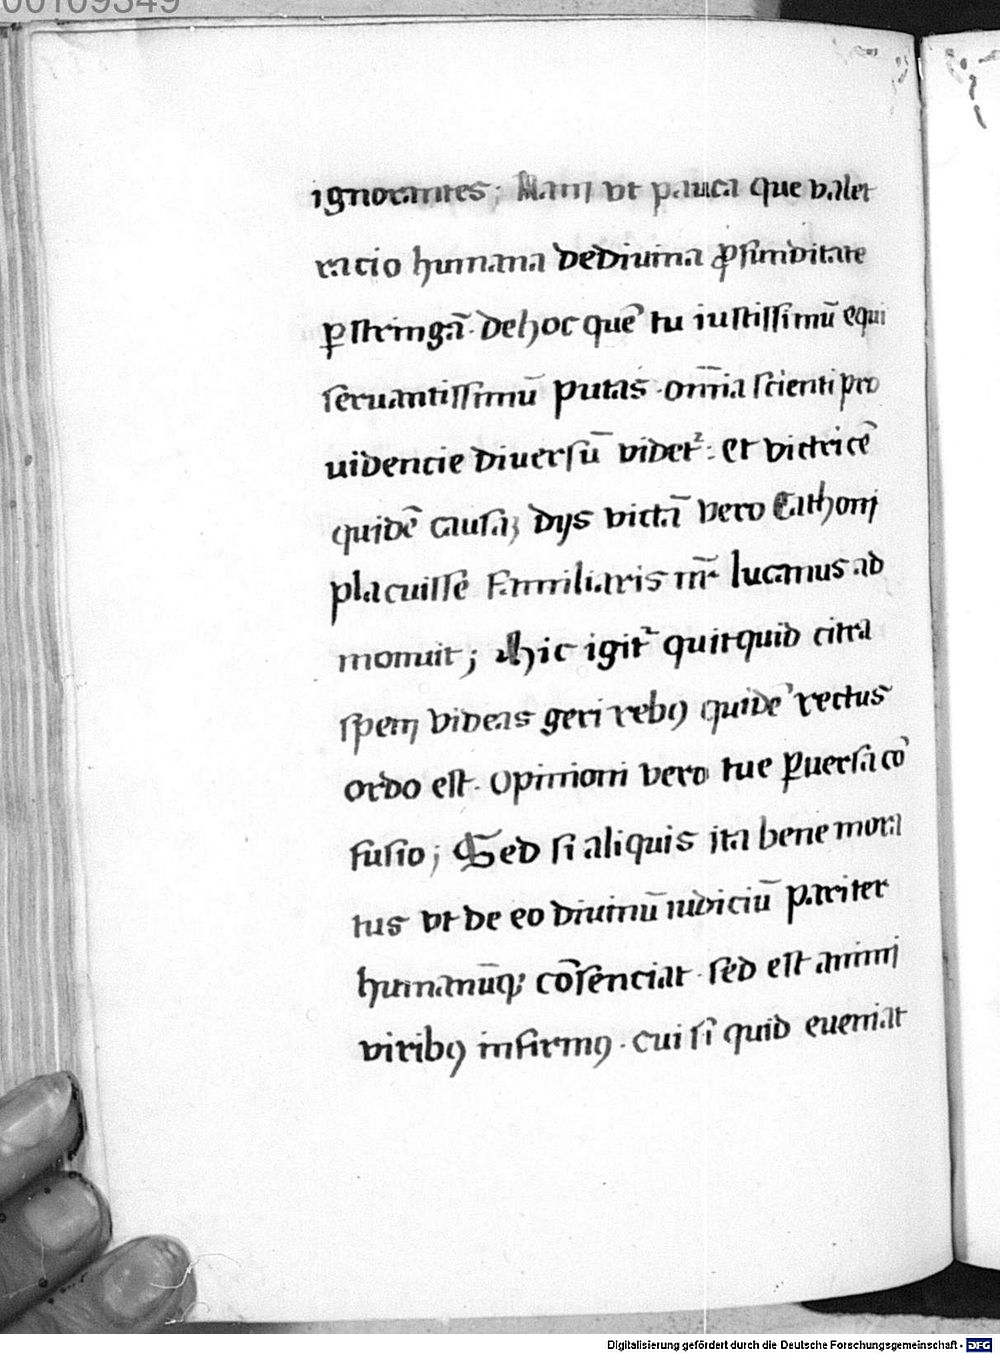 00109349
ignorantes; Nam vt pauca que valet
racio humana de diuina ꝓfunditate
ꝑstringā. de hoc quē tu iustissimū equi
seruantissimū putas. om̄ia scienti pro
uidencie diuersū videt᷑: et victricē
quidē causaꝫ dijs victā vero Cathoni
placuisse familiaris nr̄ lucanus ad
monuit; Hic igit᷑ quitquid citra
spem videas geri rebꝰ quidē rectus
ordo est. Opinioni vero tue ꝑuersa cō
fusio; Sed si aliquis ita bene mora
tus vt de eo diuinū iudiciū pariter
humanūqꝫ cōsenciat. sed est animi
viribꝰ infirmꝰ. cui si quid eueniat
Digitalisierung gefördert durch die Deutsche Forschungsgemeinschaft - DFG